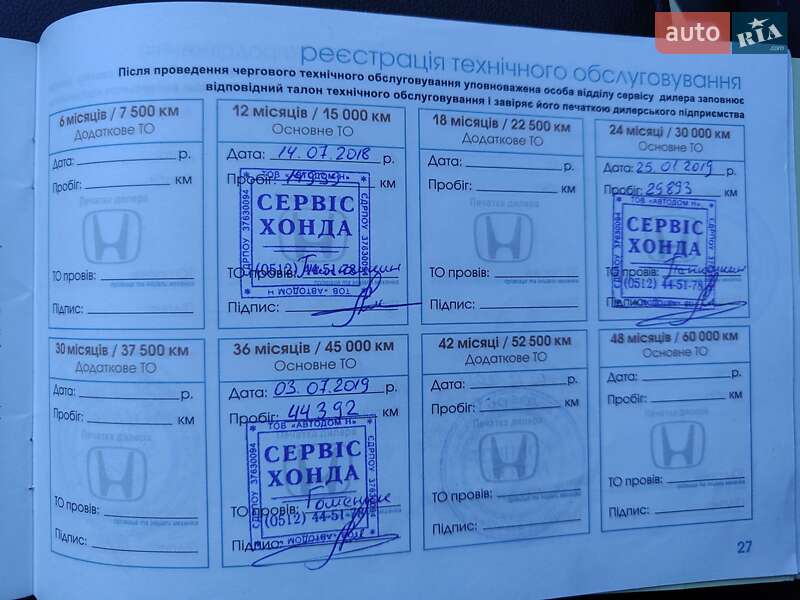 auto RIA .com
реєстрація технічного обслуговування
Після проведення чергового технічного обслуговування уповноважена особа відділу сервісу дилера заповнює
відповідний талон технічного обслуговування і завіряє його печаткою дилерського підприємства
6 місяців / 7 500 км
Додаткове ТО
Дата: р.
Пробіг: км
Печатка дилера
ТО провів:
прізвище та ініціали механіка
Підпис:
12 місяців / 15 000 км
Основне ТО
Дата: 14.07.2018 р.
Пробіг: км
ТОВ «АВТОДОМ Н»
ЄДРПОУ 37630094
СЕРВІС
ХОНДА
ТО провів:
(0512) 44-51-78
ТОВ «АВТОДОМ Н»
Підпис:
18 місяців / 22 500 км
Додаткове ТО
Дата: р.
Пробіг: км
Печатка дилера
ТО провів:
прізвище та ініціали механіка
Підпис:
24 місяці / 30 000 км
Основне ТО
Дата: 25.01 2019 р.
Пробіг: 25893 км
ТОВ «АВТОДОМ Н»
ЄДРПОУ 37630094
СЕРВІС
ХОНДА
ТО провів:
(0512) 44-51-78
Підпис:
30 місяців / 37 500 км
Додаткове ТО
Дата: р.
Пробіг: км
Печатка дилера
ТО провів:
прізвище та ініціали механіка
Підпис:
36 місяців / 45 000 км
Основне ТО
Дата: 03.07.2019 р.
Пробіг: 44392 км
Печатка дилера
ТОВ «АВТОДОМ Н»
ЄДРПОУ 37630094
СЕРВІС
ХОНДА
ТО провів:
(0512) 44-51-78
Підпис:
42 місяці / 52 500 км
Додаткове ТО
Дата: р.
Пробіг: км
Печатка дилера
ТО провів:
прізвище та ініціали механіка
Підпис:
48 місяців / 60 000 км
Основне ТО
Дата: р.
Пробіг: км
Печатка дилера
ТО провів:
прізвище та ініціали механіка
Підпис:
27